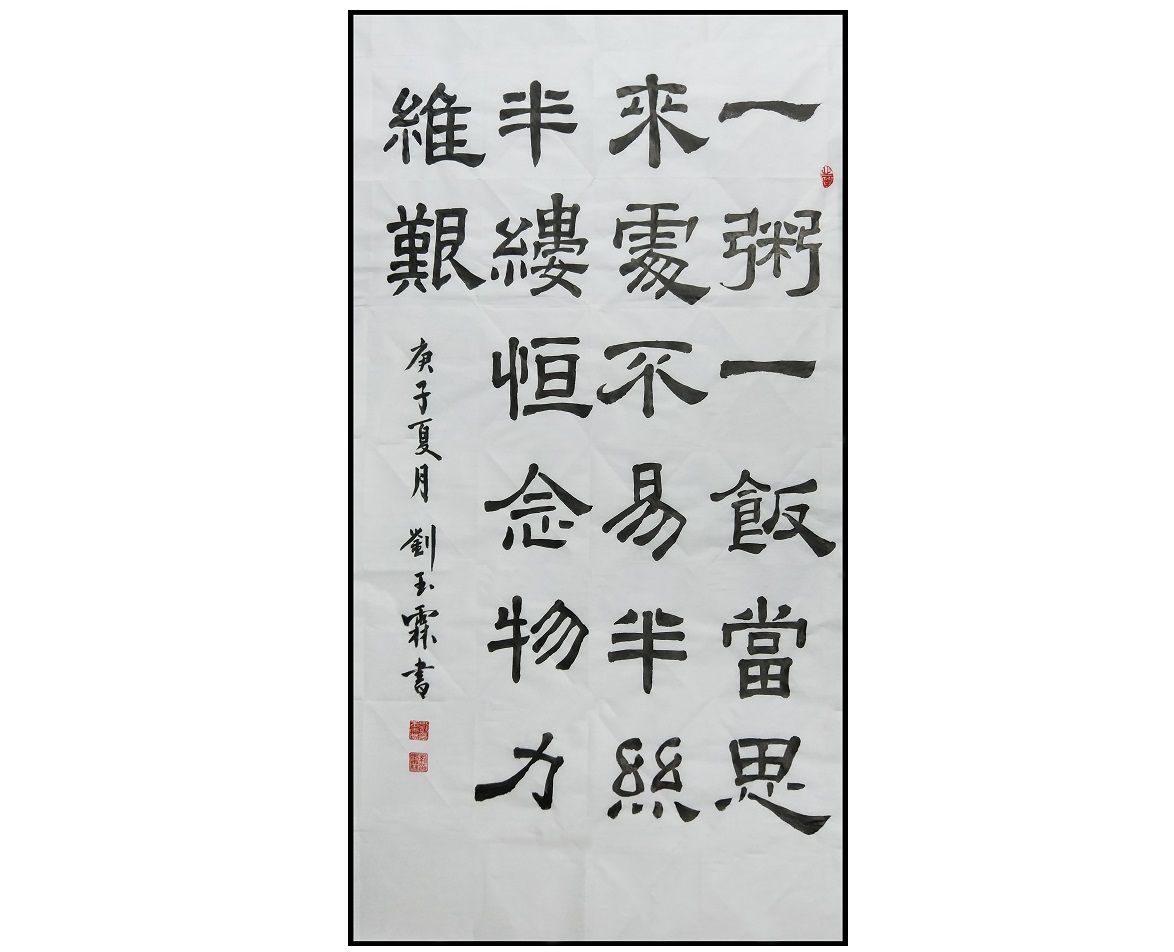 一粥一飯當思
來處不易半絲
半縷恒念物力
維艱
庚子夏月劉玉霖書